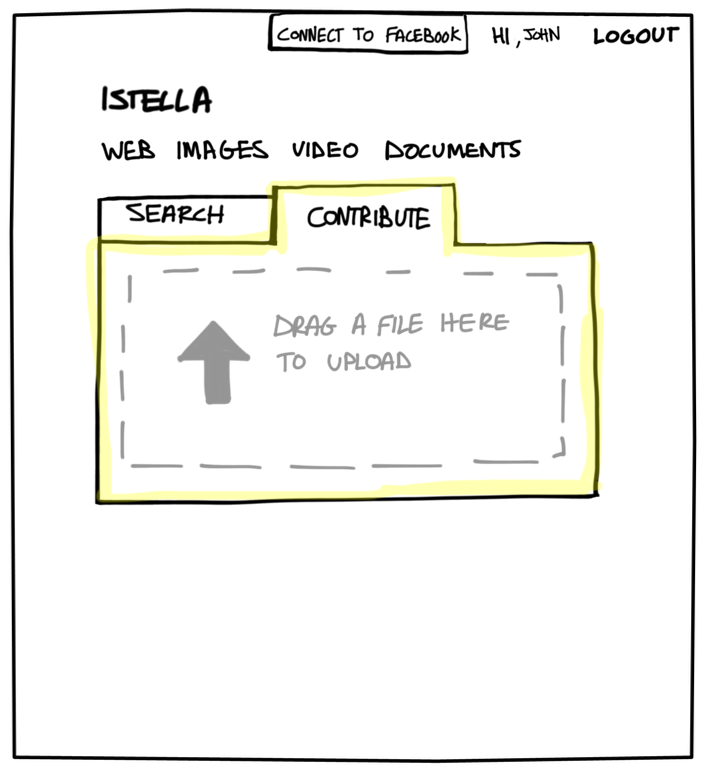 CONNECT TO FACEBOOK HI, JOHN LOGOUT
ISTELLA
WEB IMAGES VIDEO DOCUMENTS
SEARCH CONTRIBUTE
DRAG A FILE HERE
TO UPLOAD